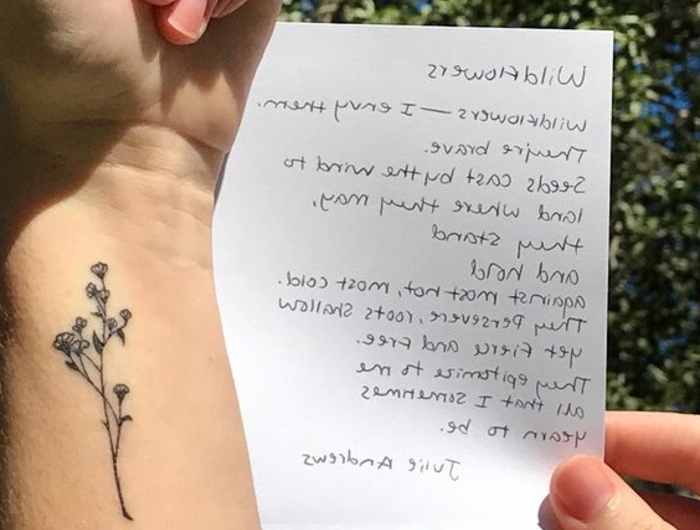 Wildflowers
Wildflowers — I envy them.
They're brave.
Seeds cast by the wind to
land where they may,
they stand
and hold
against most hot, most cold.
They persevere, roots shallow
yet fierce and free.
They epitomize to me
all that I sometimes
yearn to be.
Julie Andrews